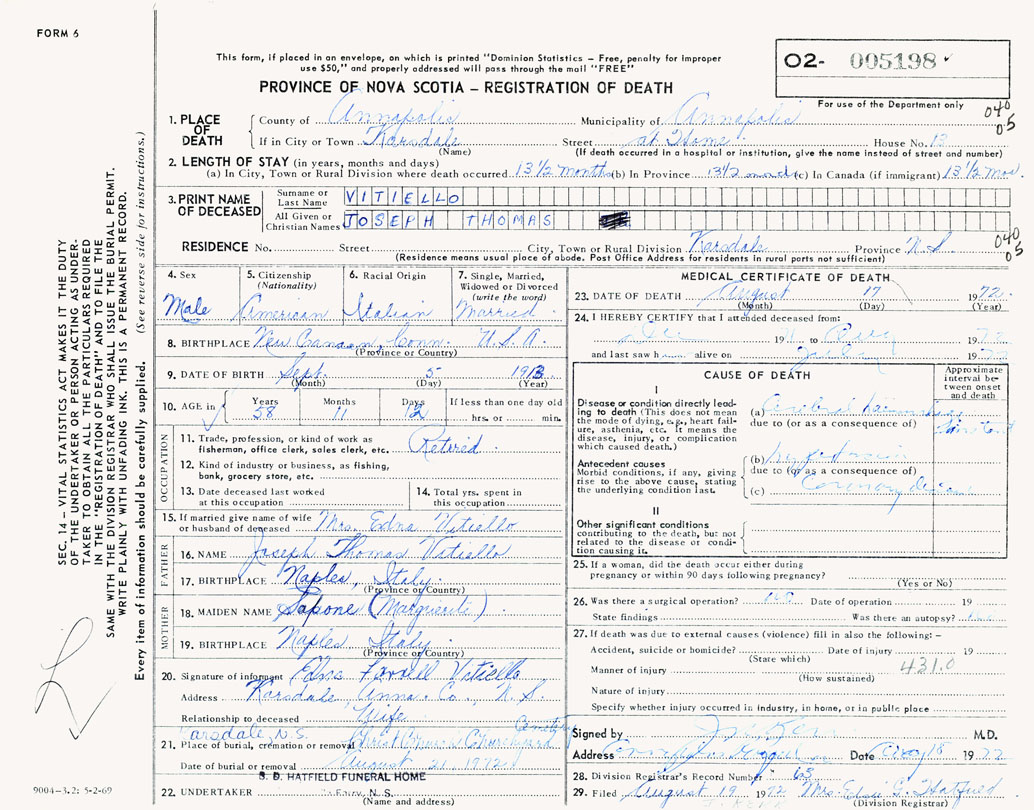 FORM 6
This form, if placed in an envelope, on which is printed "Dominion Statistics – Free, penalty for improper
use $50," and properly addressed will pass through the mail "FREE"
PROVINCE OF NOVA SCOTIA – REGISTRATION OF DEATH
O2- 005198
For use of the Department only
040
05
1. PLACE OF DEATH
County of Annapolis Municipality of Annapolis
If in City or Town Karsdale Street at Home House No. 13
(Name) (If death occurred in a hospital or institution, give the name instead of street and number)
2. LENGTH OF STAY (in years, months and days)
(a) In City, Town or Rural Division where death occurred 13 1/2 months (b) In Province 13 1/2 months (c) In Canada (if immigrant) 13 1/2 mos.
3. PRINT NAME OF DECEASED
Surname or Last Name VITIELLO
All Given or Christian Names JOSEPH THOMAS
RESIDENCE No. Street City, Town or Rural Division Karsdale Province N.S.
040
05
(Residence means usual place of abode. Post Office Address for residents in rural parts not sufficient)
4. Sex Male
5. Citizenship (Nationality) American
6. Racial Origin Italian
7. Single, Married, Widowed or Divorced (write the word) Married
8. BIRTHPLACE New Canaan, Conn. U.S.A.
(Province or Country)
9. DATE OF BIRTH Sept. 5 1913
(Month) (Day) (Year)
10. AGE in Years 58 Months 11 Days 12 If less than one day old hrs. or min.
OCCUPATION
11. Trade, profession, or kind of work as fisherman, office clerk, sales clerk, etc. Retired
12. Kind of industry or business, as fishing, bank, grocery store, etc.
13. Date deceased last worked at this occupation
14. Total yrs. spent in this occupation
15. If married give name of wife or husband of deceased Mrs. Edna Vitiello
FATHER
16. NAME Joseph Thomas Vitiello
17. BIRTHPLACE Naples, Italy
(Province or Country)
MOTHER
18. MAIDEN NAME Sapone (Margueriti)
19. BIRTHPLACE Naples Italy
(Province or Country)
20. Signature of informant Edna Vitiello
Address Karsdale, Anna. Co., N.S.
Relationship to deceased Wife
Karsdale, N.S. Cemetery
21. Place of burial, cremation or removal Christ Church Churchyard
Date of burial or removal August 21 1972
S. D. HATFIELD FUNERAL HOME
22. UNDERTAKER N. S.
(Name and address)
MEDICAL CERTIFICATE OF DEATH
23. DATE OF DEATH August 17 1972
(Month) (Day) (Year)
24. I HEREBY CERTIFY that I attended deceased from:
19 to 19
and last saw h alive on 19
CAUSE OF DEATH
Approximate interval between onset and death
I
Disease or condition directly leading to death (This does not mean the mode of dying, e.g., heart failure, asthenia, etc. It means the disease, injury, or complication which caused death.)
(a) Cerebral
due to (or as a consequence of)
Antecedent causes
Morbid conditions, if any, giving rise to the above cause, stating the underlying condition last.
(b)
due to (or as a consequence of)
(c) Coronary disease
II
Other significant conditions
contributing to the death, but not related to the disease or condition causing it.
25. If a woman, did the death occur either during pregnancy or within 90 days following pregnancy?
(Yes or No)
26. Was there a surgical operation? no Date of operation 19
State findings Was there an autopsy?
27. If death was due to external causes (violence) fill in also the following: –
Accident, suicide or homicide? Date of injury 19
(State which)
Manner of injury 431.0
(How sustained)
Nature of injury
Specify whether injury occurred in industry, in home, or in public place
Signed by M.D.
Address Date Aug 18 1972
28. Division Registrar's Record Number 63
29. Filed August 19 1972 Mrs. Hatfield
J. KERR
(Division Registrar)
SEC. 14 – VITAL STATISTICS ACT MAKES IT THE DUTY
OF THE UNDERTAKER OR PERSON ACTING AS UNDER-
TAKER TO OBTAIN ALL THE PARTICULARS REQUIRED
IN THE "REGISTRATION OF DEATH" AND TO FILE THE
SAME WITH THE DIVISION REGISTRAR WHO SHALL ISSUE THE BURIAL PERMIT.
WRITE PLAINLY WITH UNFADING INK. THIS IS A PERMANENT RECORD.
Every item of information should be carefully supplied. (See reverse side for instructions.)
9004–3.2: 5-2-69